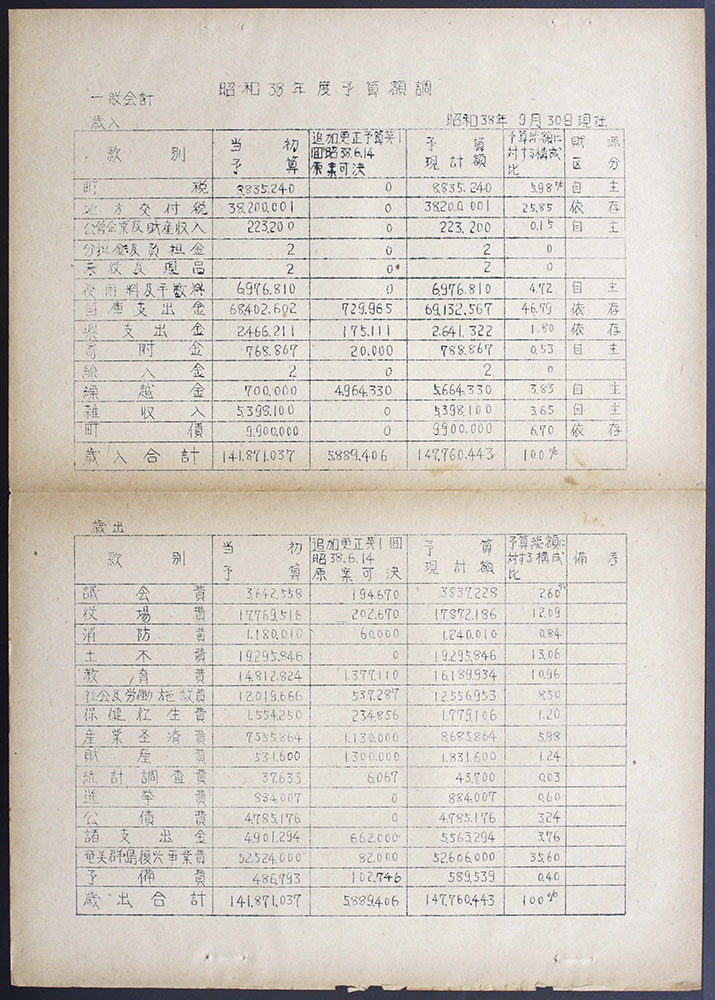 昭和38年度予算額調
一般会計
歳入
昭和38年 9月30日現在
款別 当初予算 追加更正予算第1回昭38.6.14原案可決 予算現計額 予算総額に対する構成比 財源区分
町税 8,835.240 0 8,835.240 5.98% 自主
地方交付税 38,200.001 0 38,200.001 25.85 依存
公営企業及財産収入 223,200 0 223,200 0.15 自主
分担金及負担金 2 0 2 0
0 2 0
使用料及手数料 6,976.810 0 6,976.810 4.72 自主
国庫支出金 68,402.602 729,965 69,132.567 46.79 依存
県支出金 2,466.211 175.111 2,641.322 1.80 依存
寄附金 768.867 20.000 788.867 0.53 自主
繰入金 2 0 2 0
繰越金 700.000 4,964.330 5,664.330 3.83 自主
雑収入 5,398.100 0 5,398.100 3.65 自主
町債 9,900.000 0 9,900.000 6.70 依存
歳入合計 141,871.037 5,889.406 147,760.443 100%
歳出
款別 当初予算 追加更正第1回昭38.6.14原案可決 予算現計額 予算総額に対する構成比 備考
議会費 3,642,558 194.670 3,837.228 2.60%
役場費 17,769,516 202.670 17,872.186 12.09
消防費 1,180.010 60.000 1,240.010 0.84
土木費 19,295.846 0 19,295.846 13.06
教育費 14,812.824 1,377,110 16,189,934 10.96
社会及労働施設費 12,019.666 537.287 12,556,953 8.50
保健衛生費 1,554.250 234.856 1,779.106 1.20
産業経済費 7,555.864 1,130.000 8,685.864 5.88
財産費 531.600 1,300.000 1,831.600 1.24
統計調査費 37,633 6,067 43,700 0.03
選挙費 0 884.007 0.60
公債費 4,785.176 0 4,785.176 3.24
諸支出金 4,901.294 662.000 5,563.294 3.76
奄美群島復興事業費 52,524.000 82.000 52,606.000 35.60
予備費 486,793 102,746 589,539 0.40
歳出合計 141,871,037 5,889.406 147,760,443 100%